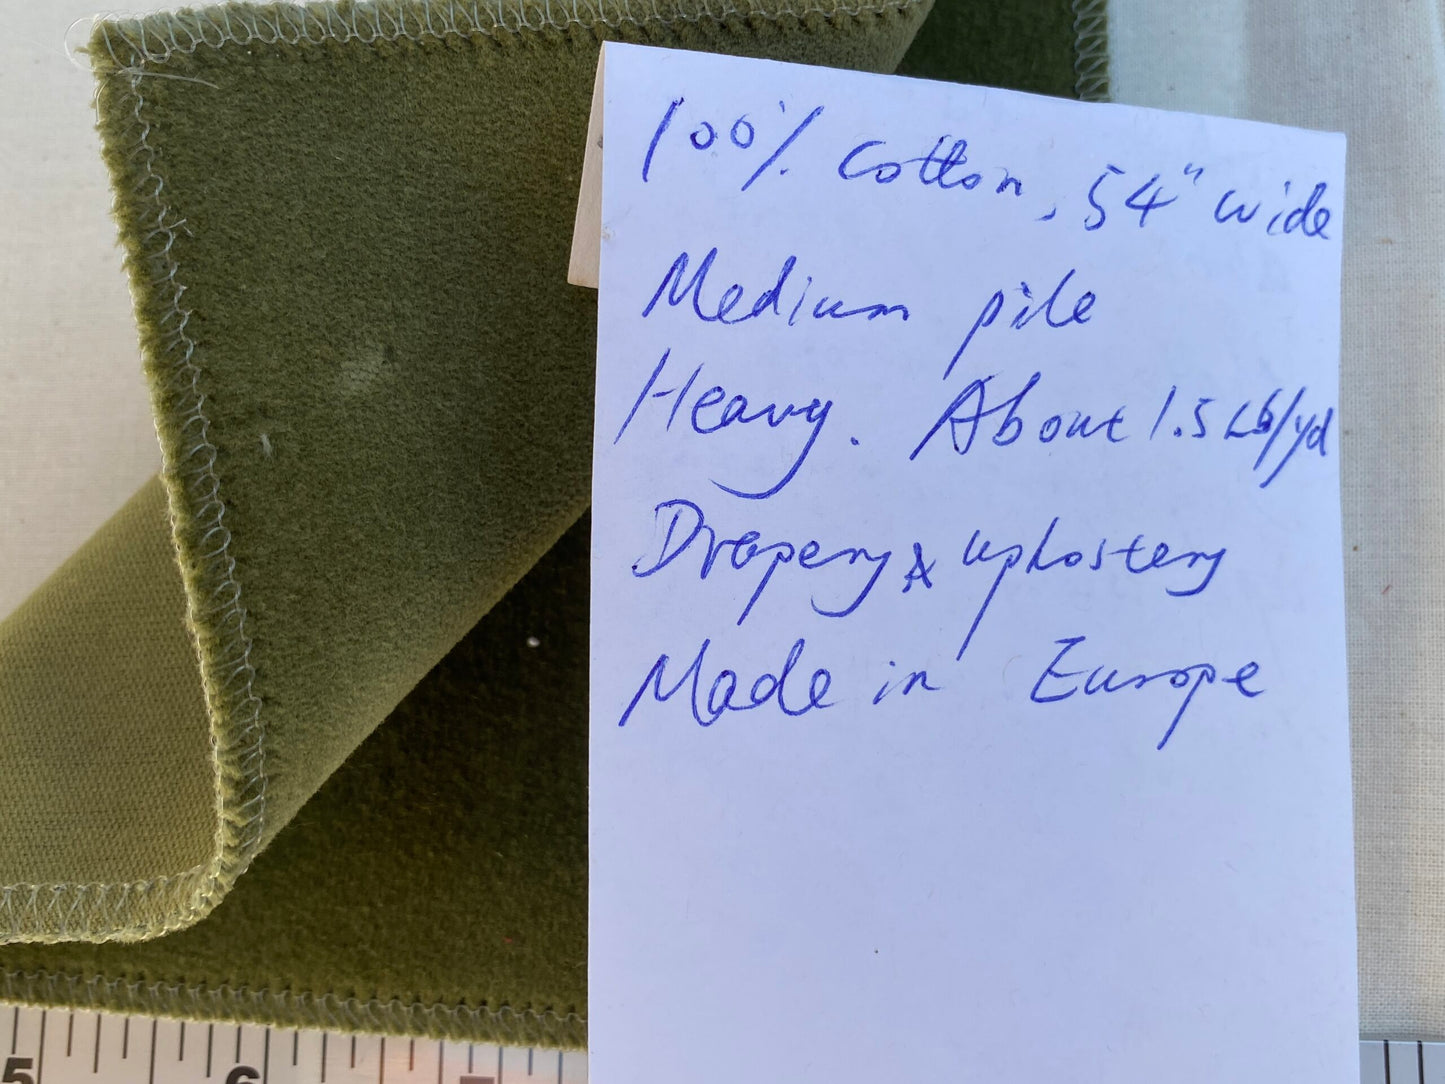 100% Cotton, 54" wide
Medium pile
Heavy. About 1.5 Lb/yd
Drapery & upholstery
Made in Europe
5
6